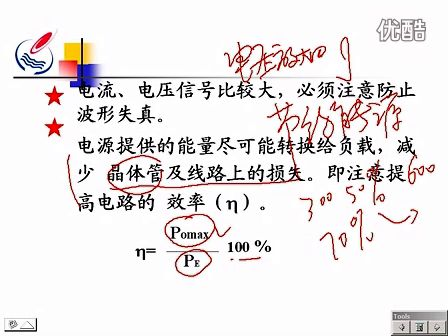 优酷
电压放大
电流、电压信号比较大，必须注意防止
波形失真。
节约能源
电源提供的能量尽可能转换给负载，减
少 晶体管及线路上的损失。即注意提
高电路的 效率（η）。
600
300 50%
70%
η= Pomax / PE 100 %
Tools